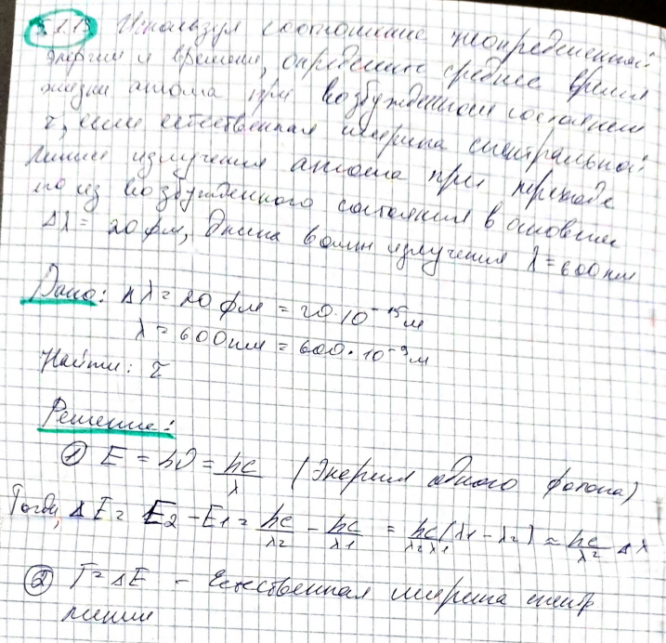 5.1.13 Используя соотношение неопределенной
энергии и времени, определить среднее время
жизни атома при возбужденном состоянии
τ, если естественная ширина спектральной
линии излучения атома при переходе
по из возбужденного состояния в основное
Δλ = 20 фм, длина волны излучения λ = 600 нм
Дано: Δλ = 20 фм = 20·10⁻¹⁵ м
λ = 600 нм = 600·10⁻⁹ м
Найти: τ
Решение:
① E = hν = hc/λ (Энергия одного фотона)
Тогда, ΔE = E₂ - E₁ = hc/λ₂ - hc/λ₁ = hc/λ₂λ₁ (λ₁ - λ₂) = hc/λ² Δλ
② Г = ΔE - Естественная ширина спектр
линии